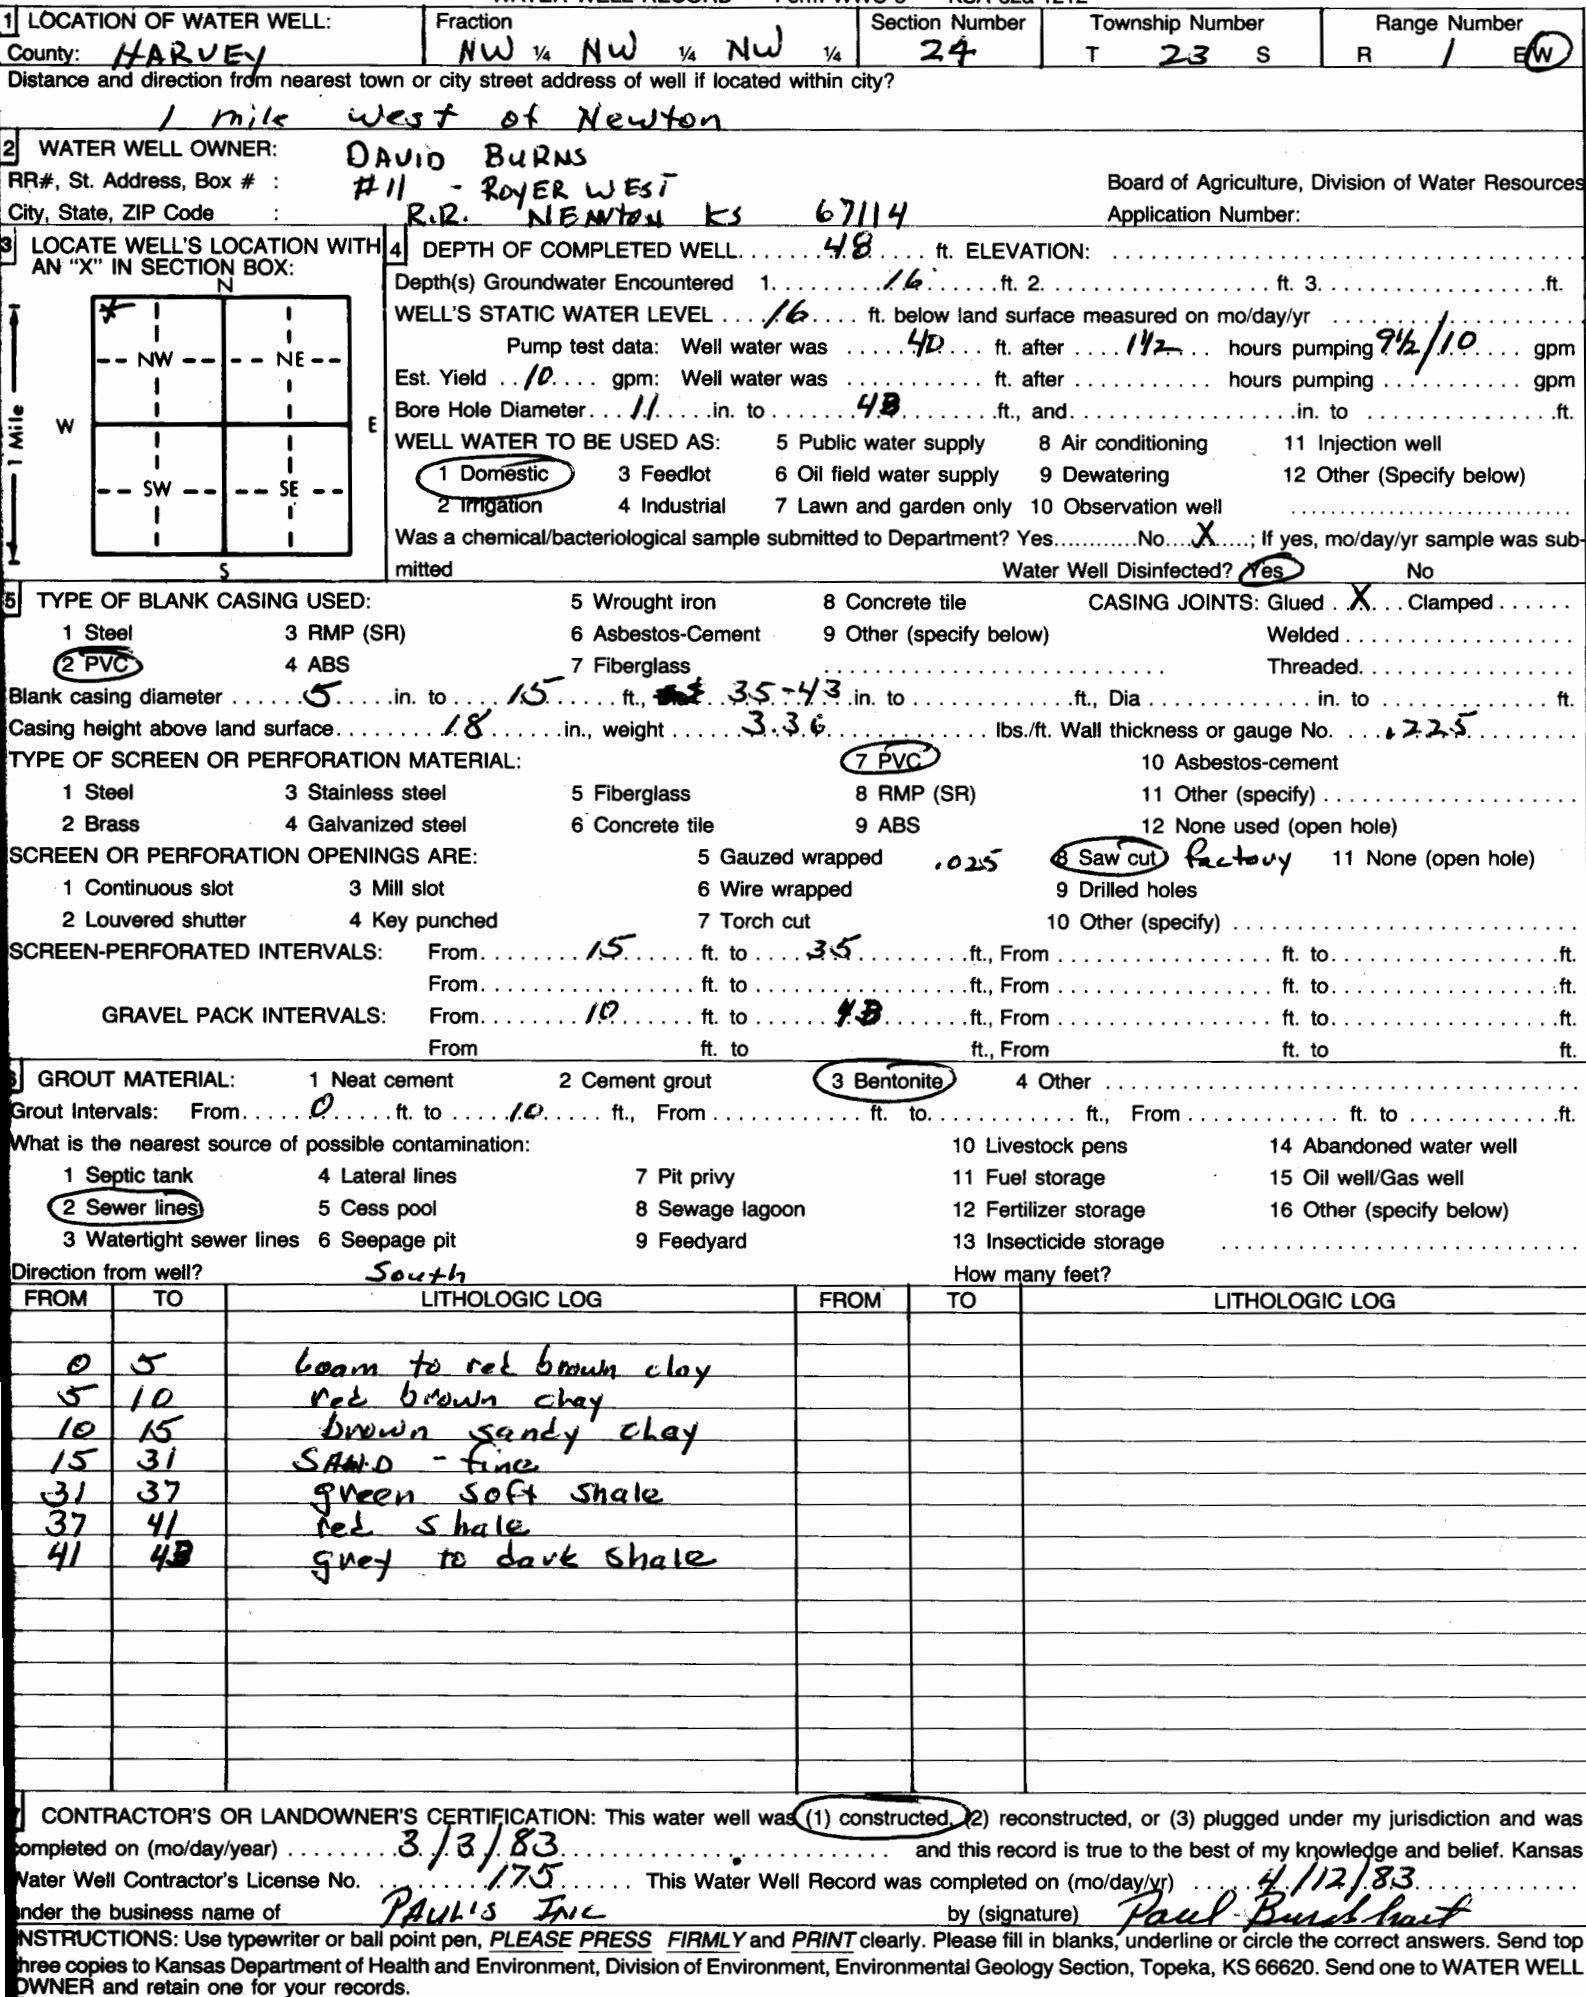 1 LOCATION OF WATER WELL: Fraction Section Number Township Number Range Number
County: HARVEY NW ¼ NW ¼ NW ¼ 24 T 23 S R 1 E(W)
Distance and direction from nearest town or city street address of well if located within city?
1 mile west of Newton
2 WATER WELL OWNER: DAVID BURNS
RR#, St. Address, Box # : #11 - ROYER WEST Board of Agriculture, Division of Water Resources
City, State, ZIP Code : R.R. NEWTON KS 67114 Application Number:
3 LOCATE WELL'S LOCATION WITH AN "X" IN SECTION BOX:
N
X
NW NE
W E
SW SE
S
1 Mile
4 DEPTH OF COMPLETED WELL 48 ft. ELEVATION:
Depth(s) Groundwater Encountered 1. 16 ft. 2. ft. 3. ft.
WELL'S STATIC WATER LEVEL 16 ft. below land surface measured on mo/day/yr
Pump test data: Well water was 40 ft. after 1½ hours pumping 9½/10 gpm
Est. Yield 10 gpm: Well water was ft. after hours pumping gpm
Bore Hole Diameter 11 in. to ft., and in. to ft.
WELL WATER TO BE USED AS: 5 Public water supply 8 Air conditioning 11 Injection well
1 Domestic 3 Feedlot 6 Oil field water supply 9 Dewatering 12 Other (Specify below)
2 Irrigation 4 Industrial 7 Lawn and garden only 10 Observation well
Was a chemical/bacteriological sample submitted to Department? Yes No X ; If yes, mo/day/yr sample was sub-
mitted Water Well Disinfected? Yes No
5 TYPE OF BLANK CASING USED: 5 Wrought iron 8 Concrete tile CASING JOINTS: Glued X Clamped
1 Steel 3 RMP (SR) 6 Asbestos-Cement 9 Other (specify below) Welded
2 PVC 4 ABS 7 Fiberglass Threaded
Blank casing diameter 5 in. to 15 ft., 35-43 in. to ft., Dia in. to ft.
Casing height above land surface 18 in., weight 3.36 lbs./ft. Wall thickness or gauge No. .225
TYPE OF SCREEN OR PERFORATION MATERIAL: 7 PVC 10 Asbestos-cement
1 Steel 3 Stainless steel 5 Fiberglass 8 RMP (SR) 11 Other (specify)
2 Brass 4 Galvanized steel 6 Concrete tile 9 ABS 12 None used (open hole)
SCREEN OR PERFORATION OPENINGS ARE: 5 Gauzed wrapped .025 8 Saw cut factory 11 None (open hole)
1 Continuous slot 3 Mill slot 6 Wire wrapped 9 Drilled holes
2 Louvered shutter 4 Key punched 7 Torch cut 10 Other (specify)
SCREEN-PERFORATED INTERVALS: From 15 ft. to 35 ft., From ft. to ft.
From ft. to ft., From ft. to ft.
GRAVEL PACK INTERVALS: From 10 ft. to ft., From ft. to ft.
From ft. to ft., From ft. to ft.
GROUT MATERIAL: 1 Neat cement 2 Cement grout 3 Bentonite 4 Other
Grout Intervals: From 0 ft. to 10 ft., From ft. to ft., From ft. to ft.
What is the nearest source of possible contamination: 10 Livestock pens 14 Abandoned water well
1 Septic tank 4 Lateral lines 7 Pit privy 11 Fuel storage 15 Oil well/Gas well
2 Sewer lines 5 Cess pool 8 Sewage lagoon 12 Fertilizer storage 16 Other (specify below)
3 Watertight sewer lines 6 Seepage pit 9 Feedyard 13 Insecticide storage
Direction from well? South How many feet?
FROM TO LITHOLOGIC LOG FROM TO LITHOLOGIC LOG
0 5 loam to red brown clay
5 10 red brown clay
10 15 brown sandy clay
15 31 SAND - fine
31 37 green soft shale
37 41 red shale
41 grey to dark shale
CONTRACTOR'S OR LANDOWNER'S CERTIFICATION: This water well was (1) constructed, (2) reconstructed, or (3) plugged under my jurisdiction and was
completed on (mo/day/year) 3/3/83 and this record is true to the best of my knowledge and belief. Kansas
Water Well Contractor's License No. 175 This Water Well Record was completed on (mo/day/yr) 4/12/83
under the business name of PAUL'S INC by (signature) Paul
INSTRUCTIONS: Use typewriter or ball point pen, PLEASE PRESS FIRMLY and PRINT clearly. Please fill in blanks, underline or circle the correct answers. Send top
three copies to Kansas Department of Health and Environment, Division of Environment, Environmental Geology Section, Topeka, KS 66620. Send one to WATER WELL
OWNER and retain one for your records.